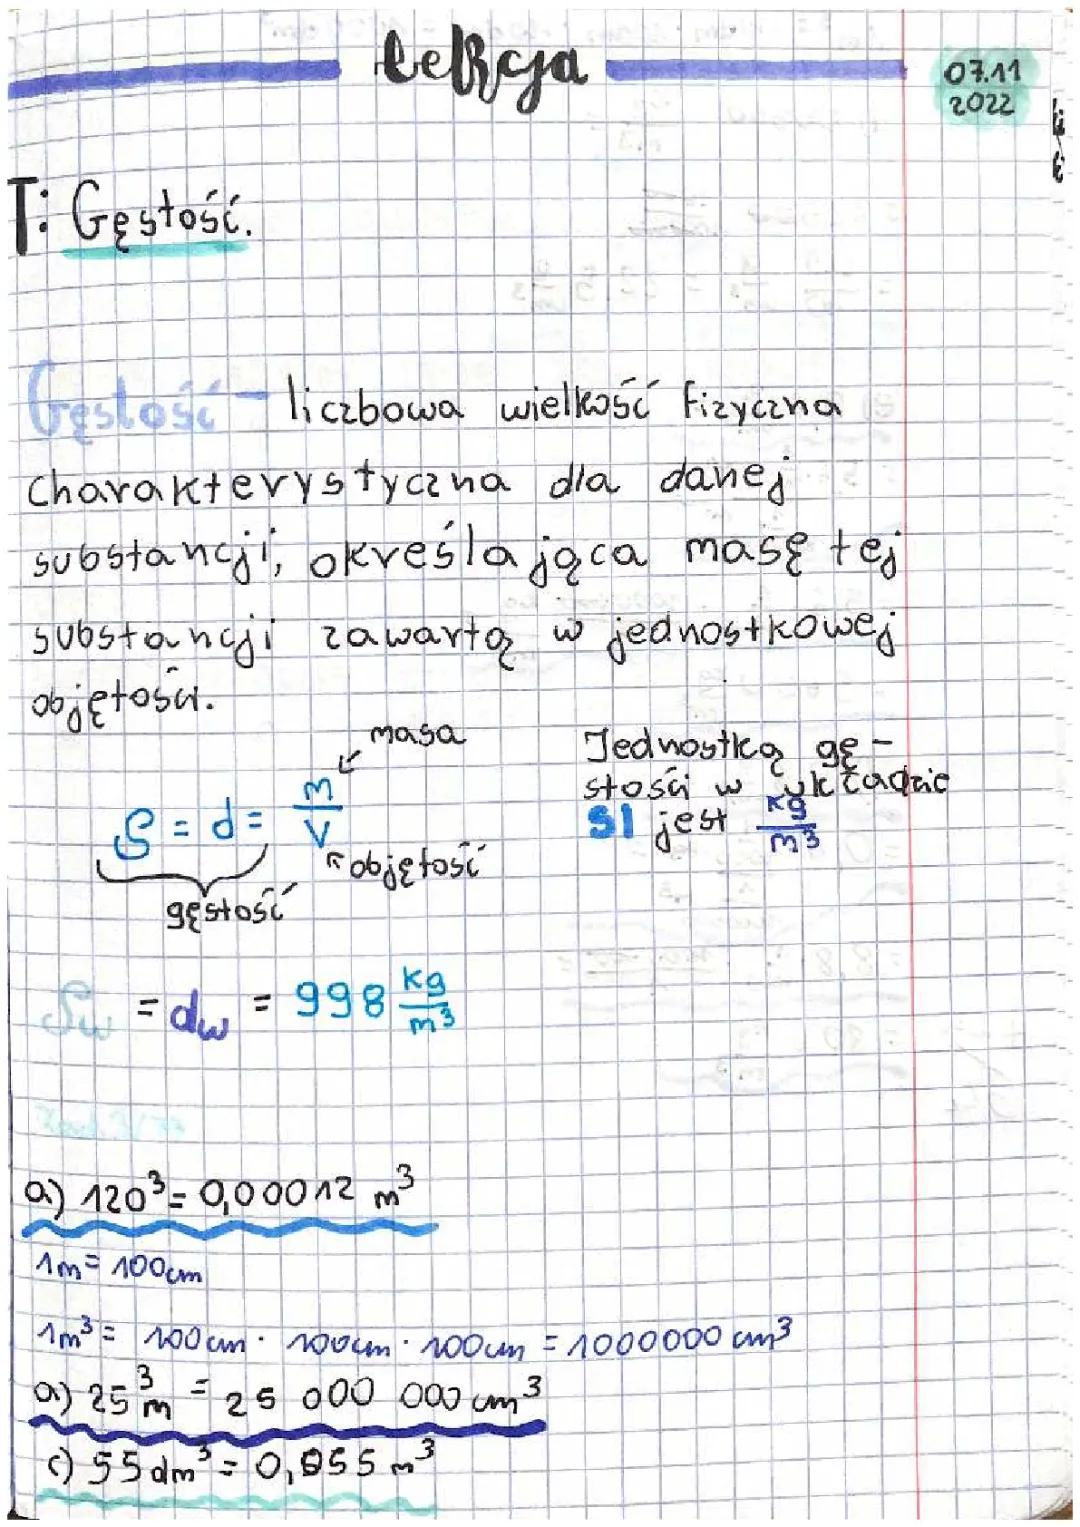 Lekcja
07.11
2022
T: Gęstość.
Gęstość - liczbowa wielkość fizyczna
charakterystyczna dla danej
substancji, określająca masę tej
substancji zawartą w jednostkowej
objętości.
masa
Jednostką gę-
stości w układzie
SI jest kg/m³
ρ = d = m/V
objętość
gęstość
ρw = dw = 998 kg/m³
a) 120³ = 0,00012 m³
1m = 100cm
1m³ = 100cm · 100cm · 100cm = 1000000 cm³
a) 25 m³ = 25 000 000 cm³
c) 55 dm³ = 0,055 m³